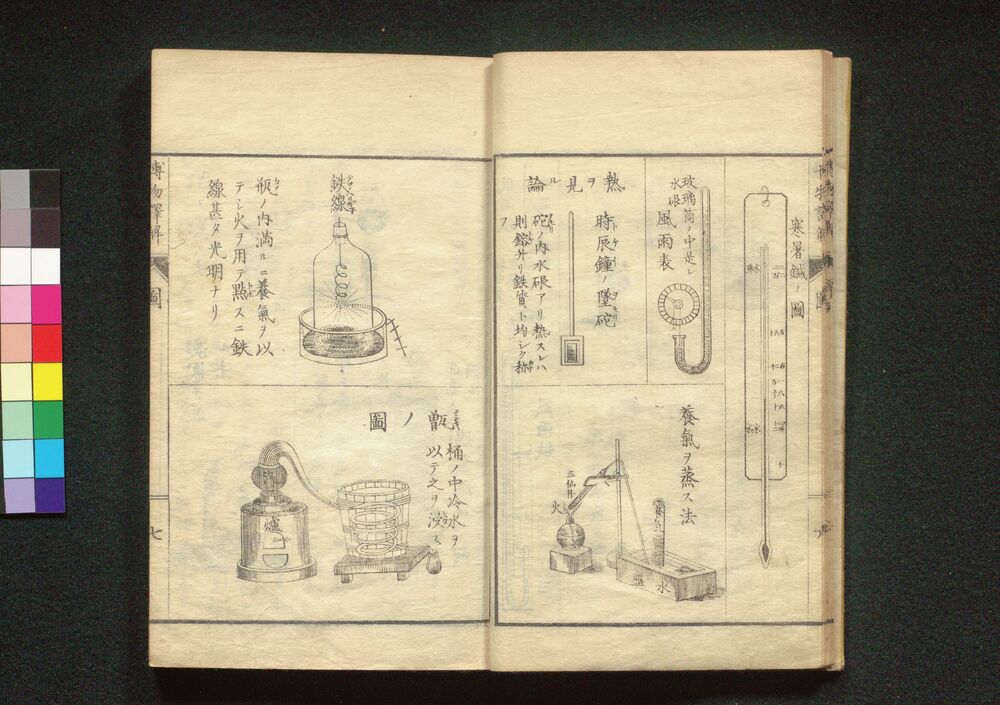 寒暑鍼ノ圖
玻璃筒ノ中是レ
水硍
風雨表
熱ヲ見ル論
時辰鐘ノ墜砣
砣ノ内水硍アリ熱スレハ
則鎔升リ鉄質ト均シク称
フ
養氣ヲ蒸ス法
三仙丹
火
養氣
水
盤
鉄線
瓶ノ内満ルニ養氣ヲ以
テシ火ヲ用テ點スニ鉄
線甚タ光明ナリ
甑ノ圖
桶ノ中冷水ヲ
以テ之ヲ浸ス
爐
博物譯解
圖
七